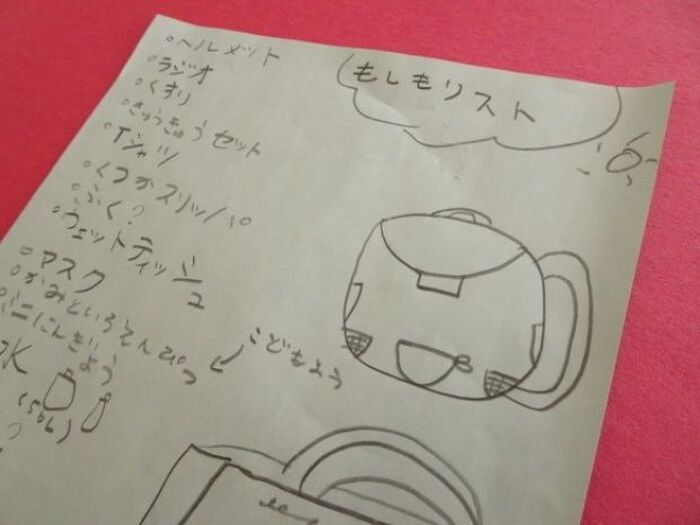 もしもリスト
・ヘルメット
・ラジオ
・くすり
・きゅうきゅうセット
・Tシャツ
・くつかスリッパ
・ふく?
・ウェットティッシュ
・マスク
・かみといろえんぴつ
ミニにんぎょう
こどもよう
水